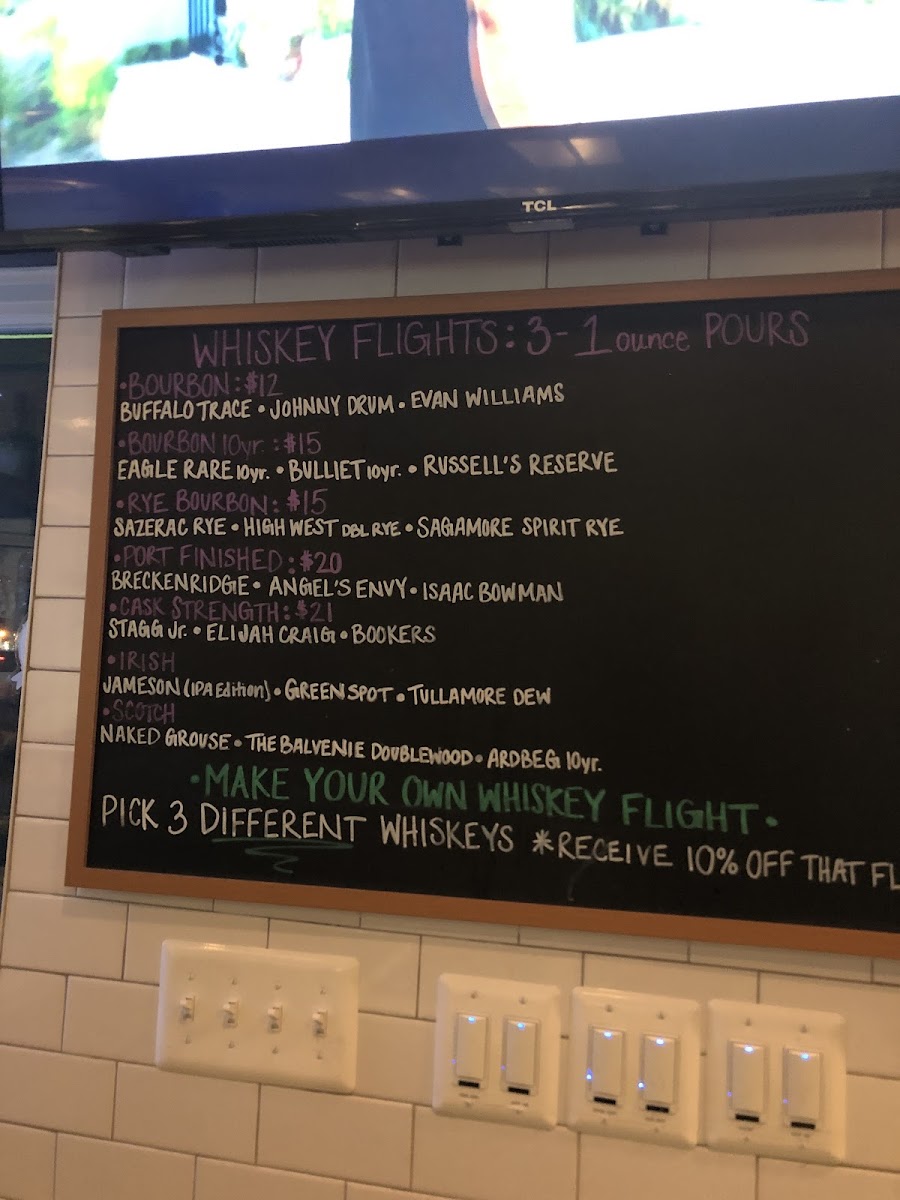 TCL
WHISKEY FLIGHTS: 3-1 ounce POURS
•BOURBON: $12
BUFFALO TRACE • JOHNNY DRUM • EVAN WILLIAMS
•BOURBON 10yr.: $15
EAGLE RARE 10yr. • BULLIET 10yr. • RUSSELL'S RESERVE
•RYE BOURBON: $15
SAZERAC RYE • HIGH WEST DBL RYE • SAGAMORE SPIRIT RYE
•PORT FINISHED: $20
BRECKENRIDGE • ANGEL'S ENVY • ISAAC BOWMAN
•CASK STRENGTH: $21
STAGG Jr. • ELIJAH CRAIG • BOOKERS
•IRISH
JAMESON (IPA Edition) • GREEN SPOT • TULLAMORE DEW
•SCOTCH
NAKED GROUSE • THE BALVENIE DOUBLEWOOD • ARDBEG 10yr.
•MAKE YOUR OWN WHISKEY FLIGHT•
PICK 3 DIFFERENT WHISKEYS *RECEIVE 10% OFF THAT FL